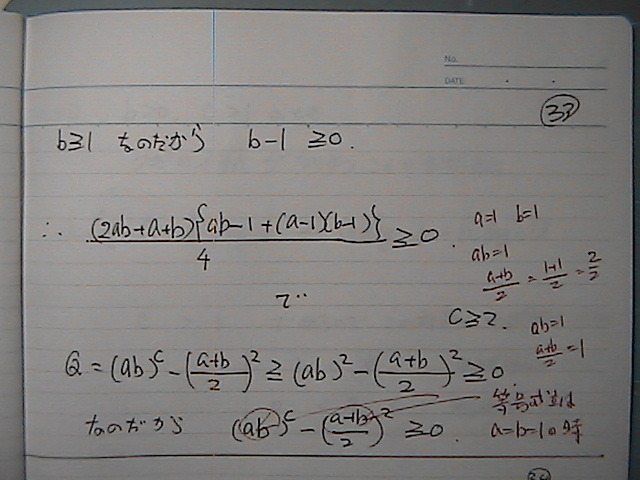 No.
DATE
33
b≧1 なのだから b-1 ≧0.
∴ (2ab+a+b){ab-1+(a-1)(b-1)}/4 ≧0.
で
a=1 b=1
ab=1
(a+b)/2 = (1+1)/2 = 2/2
C≧2.
ab=1
(a+b)/2 = 1
Q = (ab)^c - ((a+b)/2)^2 ≧ (ab)^2 - ((a+b)/2)^2 ≧0
なのだから (ab)^c - ((a+b)/2)^2 ≧0.
等号成立は
a=b=1の時
34